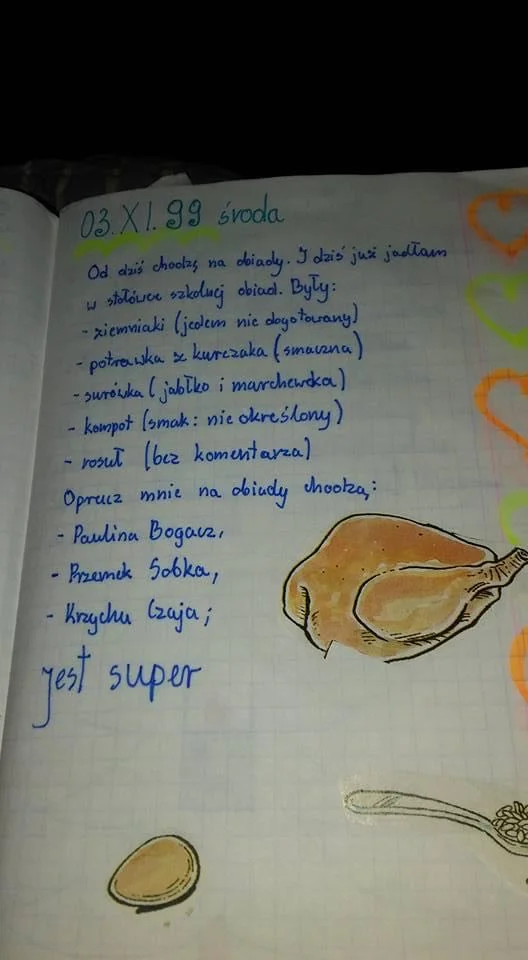 03.XI.99 środa
Od dziś chodzę na obiady. I dziś już jadłam
w stołówce szkolnej obiad. Były:
- ziemniaki (jedem nie dogotowany)
- potrawka z kurczaka (smaczna)
- surówka (jabłko i marchewdka)
- kompot (smak: nie określony)
- rosuł (bez komentarza)
Oprucz mnie na obiady chodzą:
- Paulina Bogacz,
- Przemek Sobka,
- Krzychu Czaja;
jest super